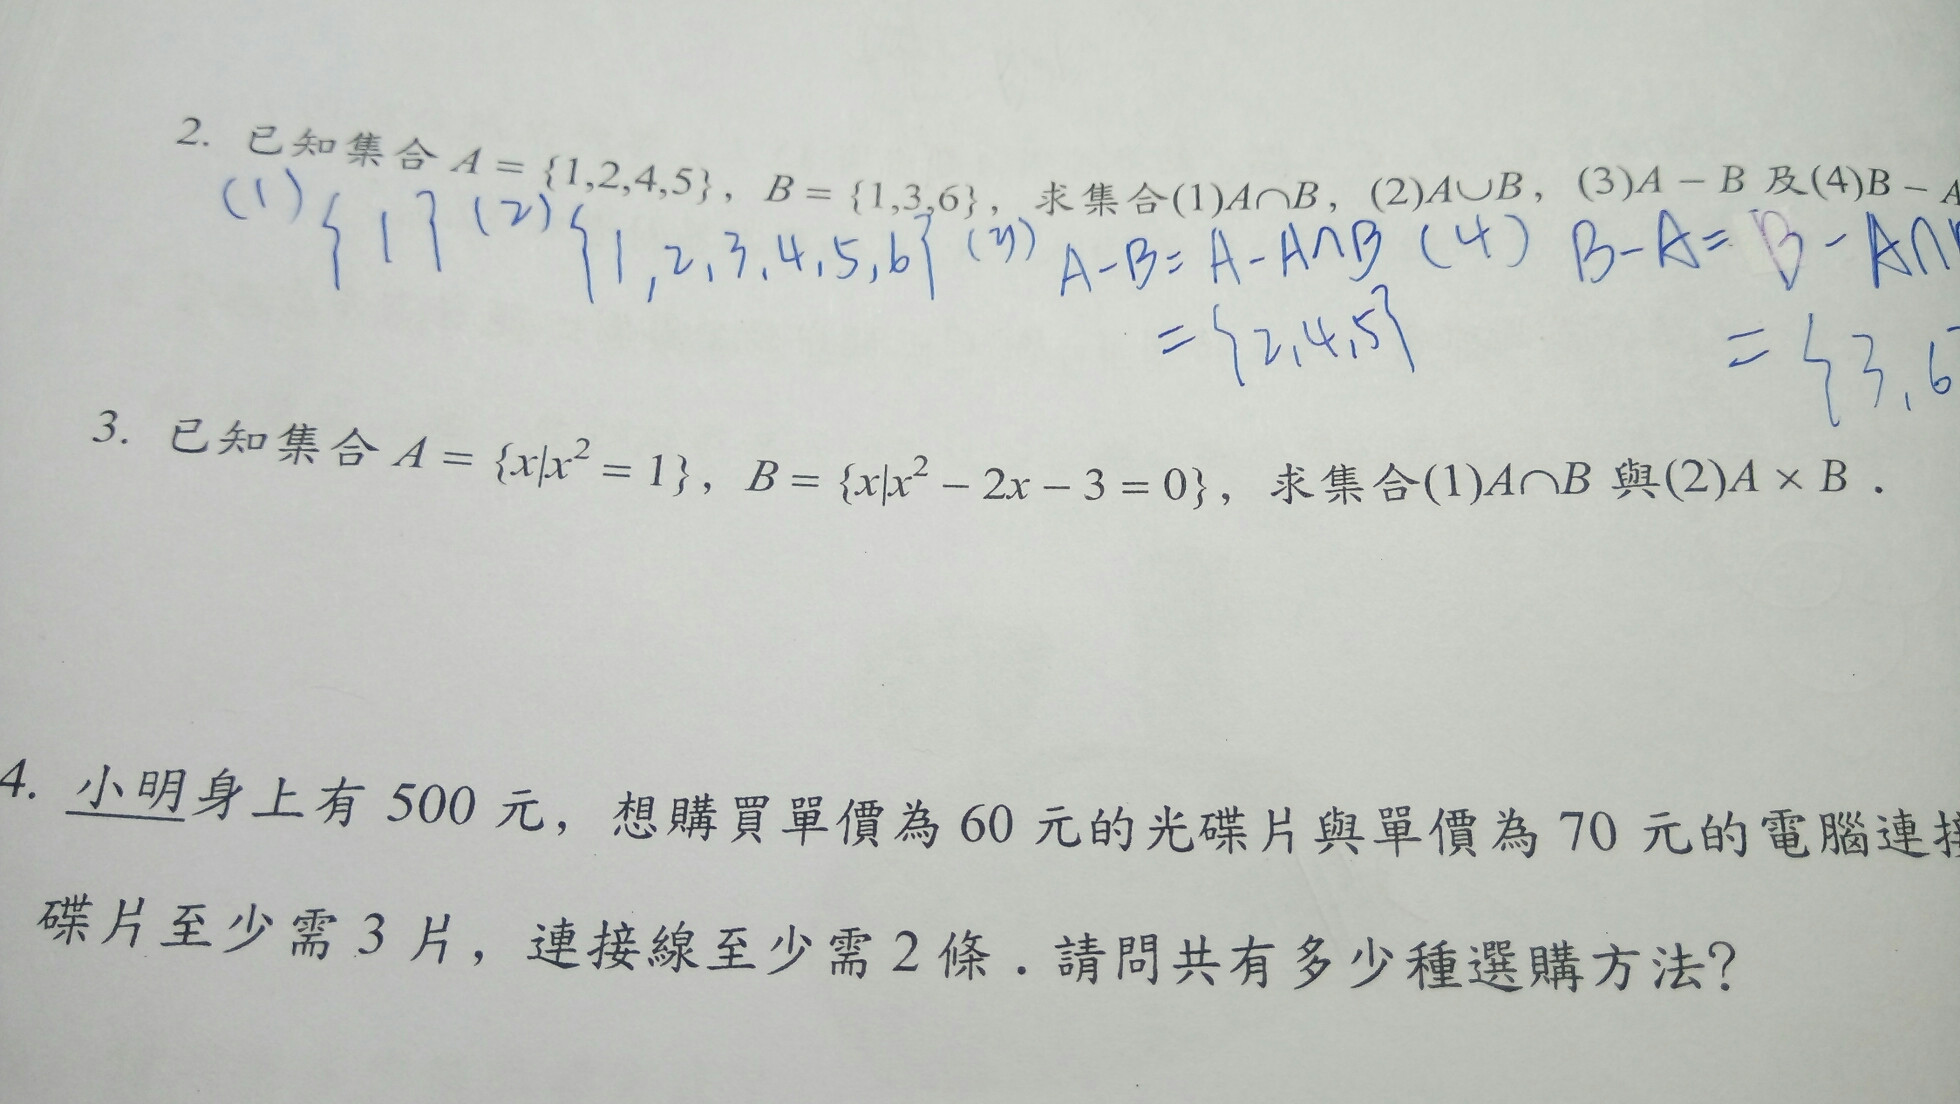 2. 已知集合 A = {1,2,4,5}，B = {1,3,6}，求集合(1)A∩B，(2)A∪B，(3)A − B 及(4)B − A
(1) {1} (2) {1,2,3,4,5,6} (3) A-B = A-A∩B (4) B-A = B-A∩
= {2,4,5} = {3,6
3. 已知集合 A = {x|x² = 1}，B = {x|x² − 2x − 3 = 0}，求集合(1)A∩B 與(2)A × B．
4. 小明身上有 500 元，想購買單價為 60 元的光碟片與單價為 70 元的電腦連接
碟片至少需 3 片，連接線至少需 2 條．請問共有多少種選購方法?